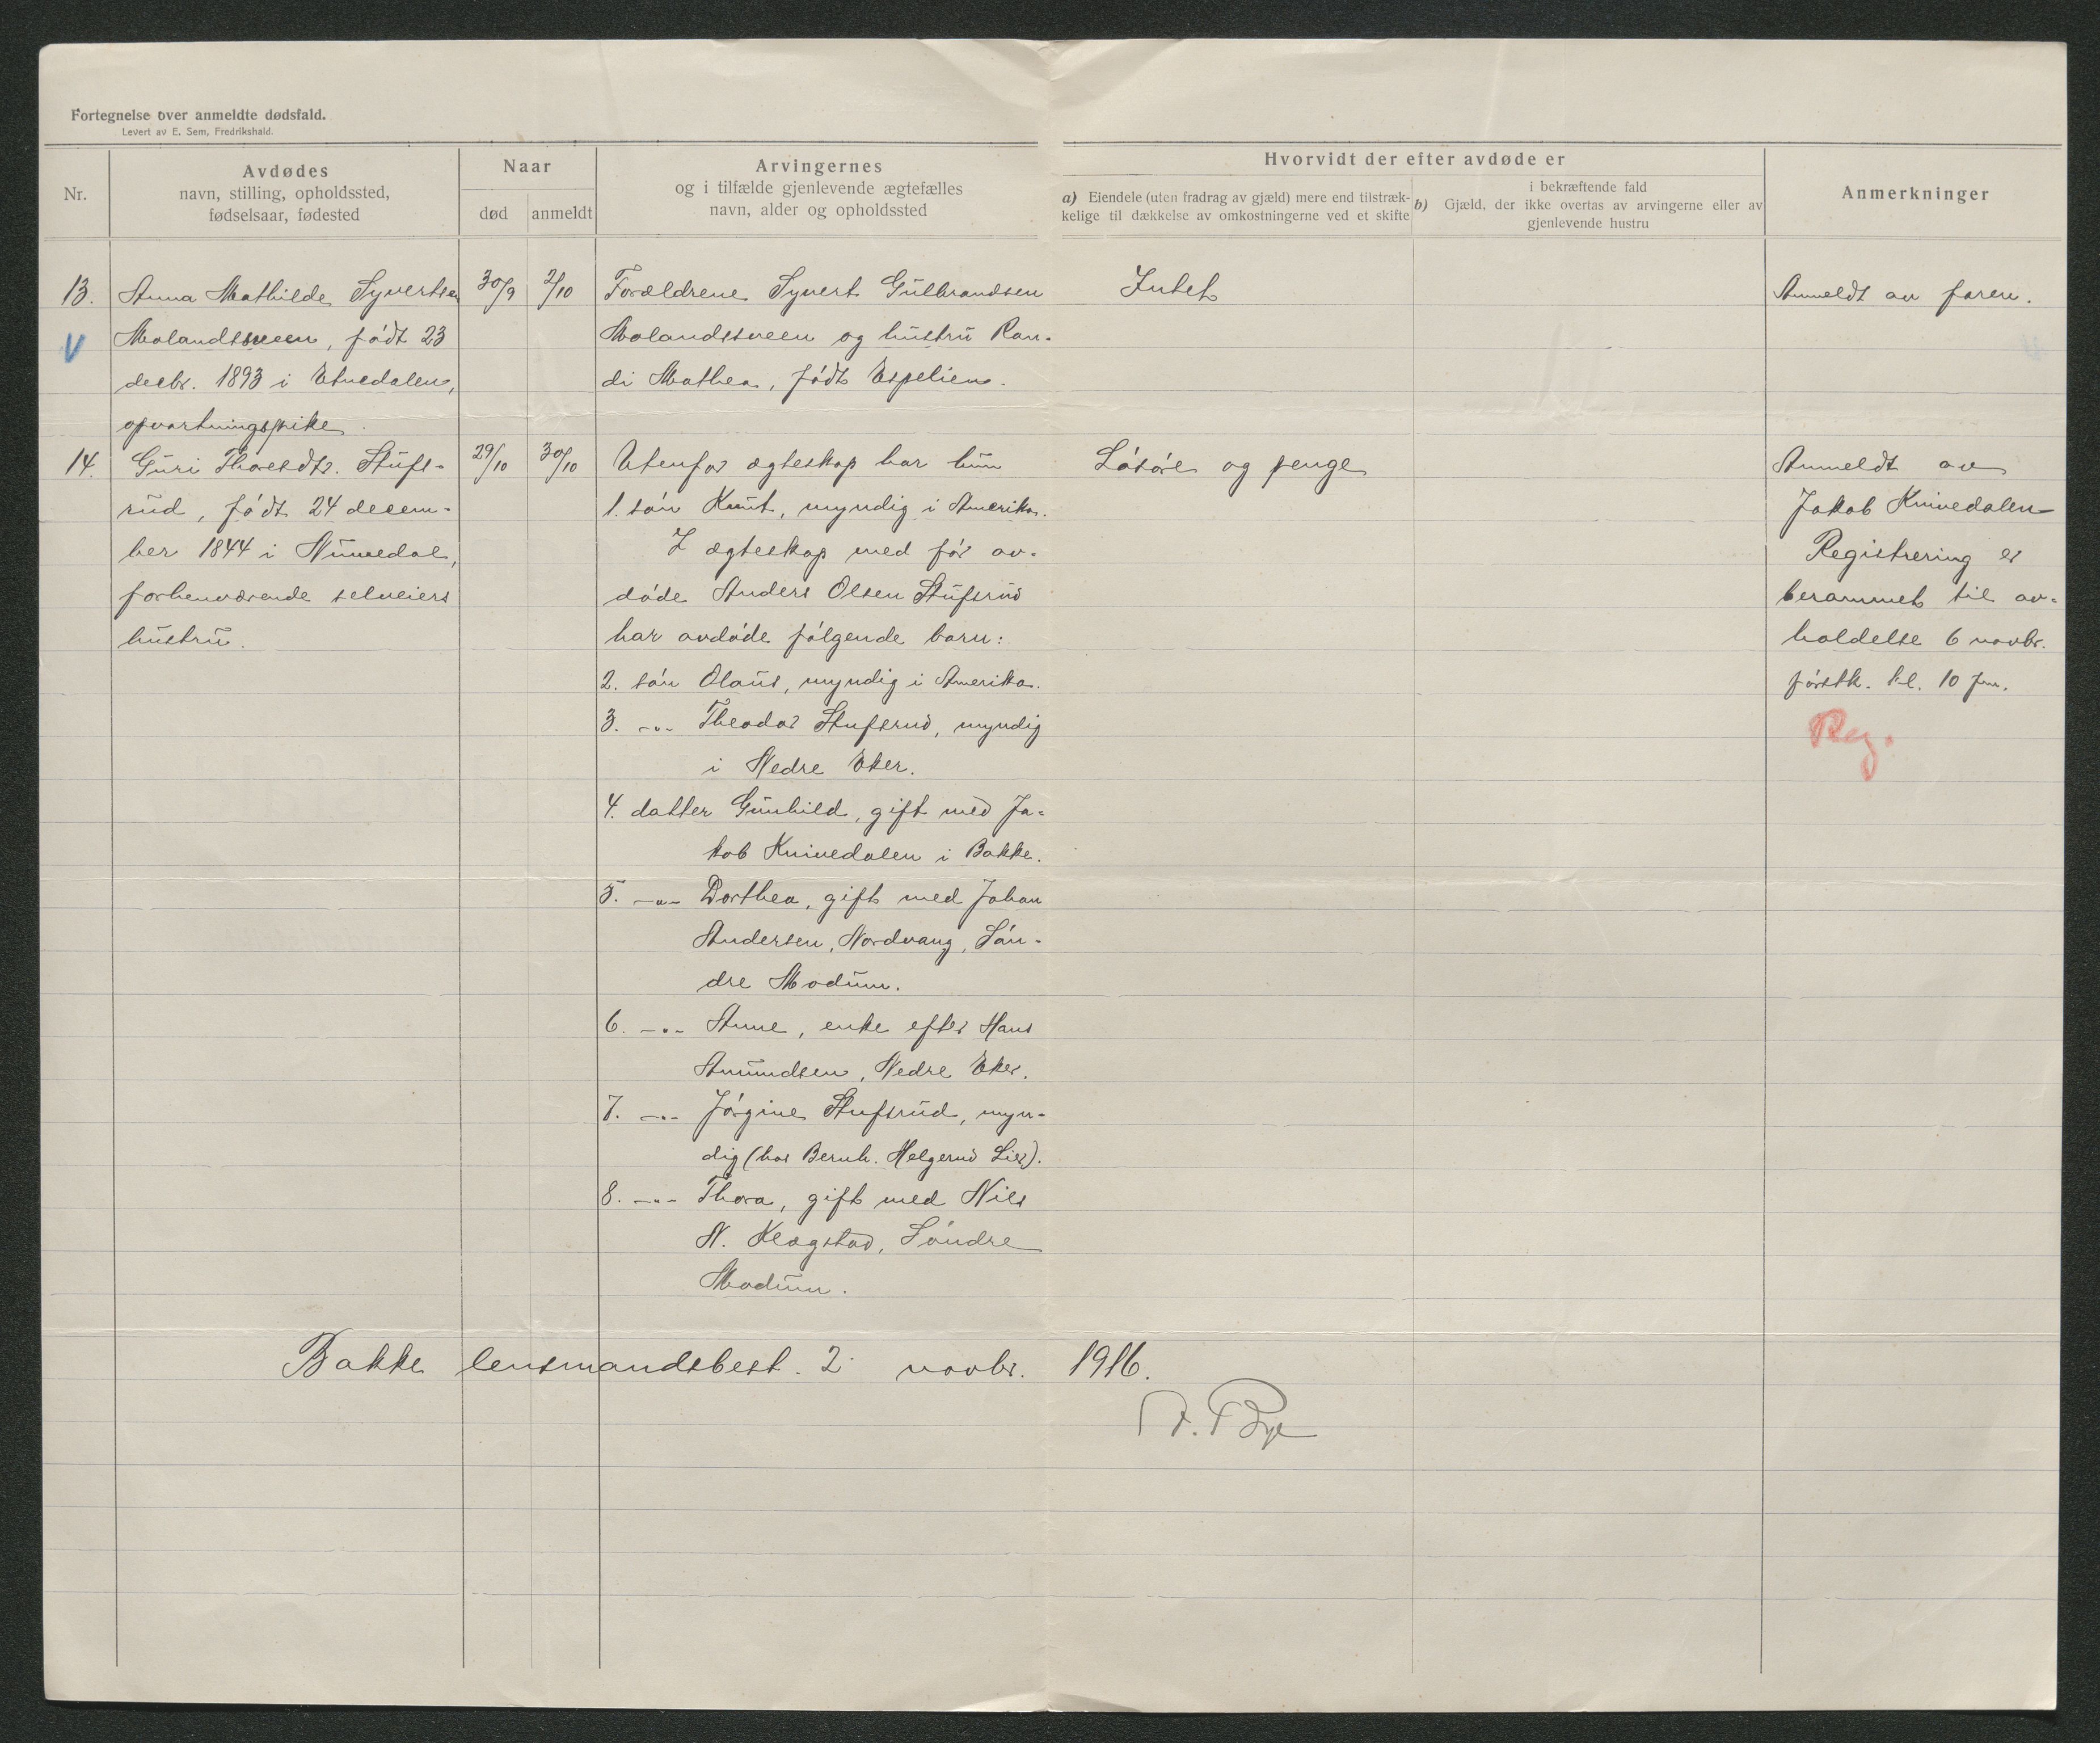 Fortegnelse over anmeldte dødsfald.
Levert av E. Sem, Fredrikshald.
Nr.
Avdødes
navn, stilling, opholdssted,
fødselsaar, fødested
Naar
død
anmeldt
Arvingernes
og i tilfælde gjenlevende ægtefælles
navn, alder og opholdssted
Hvorvidt der efter avdøde er
a) Eiendele (uten fradrag av gjæld) mere end tilstræk-
kelige til dækkelse av omkostningerne ved et skifte
i bekræftende fald
b) Gjæld, der ikke overtas av arvingerne eller av
gjenlevende hustru
Anmerkninger
13.
V
Anna Mathilde Syvertsen
Molandsveen, født 23
decbr. 1893 i Etnedalen,
opvartningspike.
30/9
2/10
Forældrene Syvert Gulbrandsen
Molandsveen og hustru Ran-
di Mathea, født Espelien.
Intet
Anmeldt av faren.
14.
Guri Thoresdtr. Stufs-
rud, født 24 decem-
ber 1844 i Numedal,
forhenværende selveiers
hustru.
29/10
30/10
Utenfor ægteskap har hun
1. søn Knut, myndig i Amerika.
I ægteskap med før av-
døde Anders Olsen Stufsrud
har avdøde følgende barn:
2. søn Olaus, myndig i Amerika.
3. -"- Theodor Stufsrud, myndig
i Nedre Eker.
4. datter Gunhild, gift med Ja-
kob Knivedalen i Bakke.
5. -"- Dorthea, gift med Johan
Andersen, Nordvang, Søn-
dre Modum.
6. -"- Anne, enke efter Hans
Amundsen, Nedre Eker.
7. -"- Jørgine Stufsrud, myn-
dig (hos Bernh. Helgerud Lier).
8. -"- Thora, gift med Nils
N. Klægstad, Søndre
Modum.
Løsøre og penge
Anmeldt av
Jakob Knivedalen
Registrering er
berammet til av-
holdelse 6 novbr.
førstk. kl. 10 fm.
Reg.
Bakke lensmandsbest. 2 novbr. 1916.